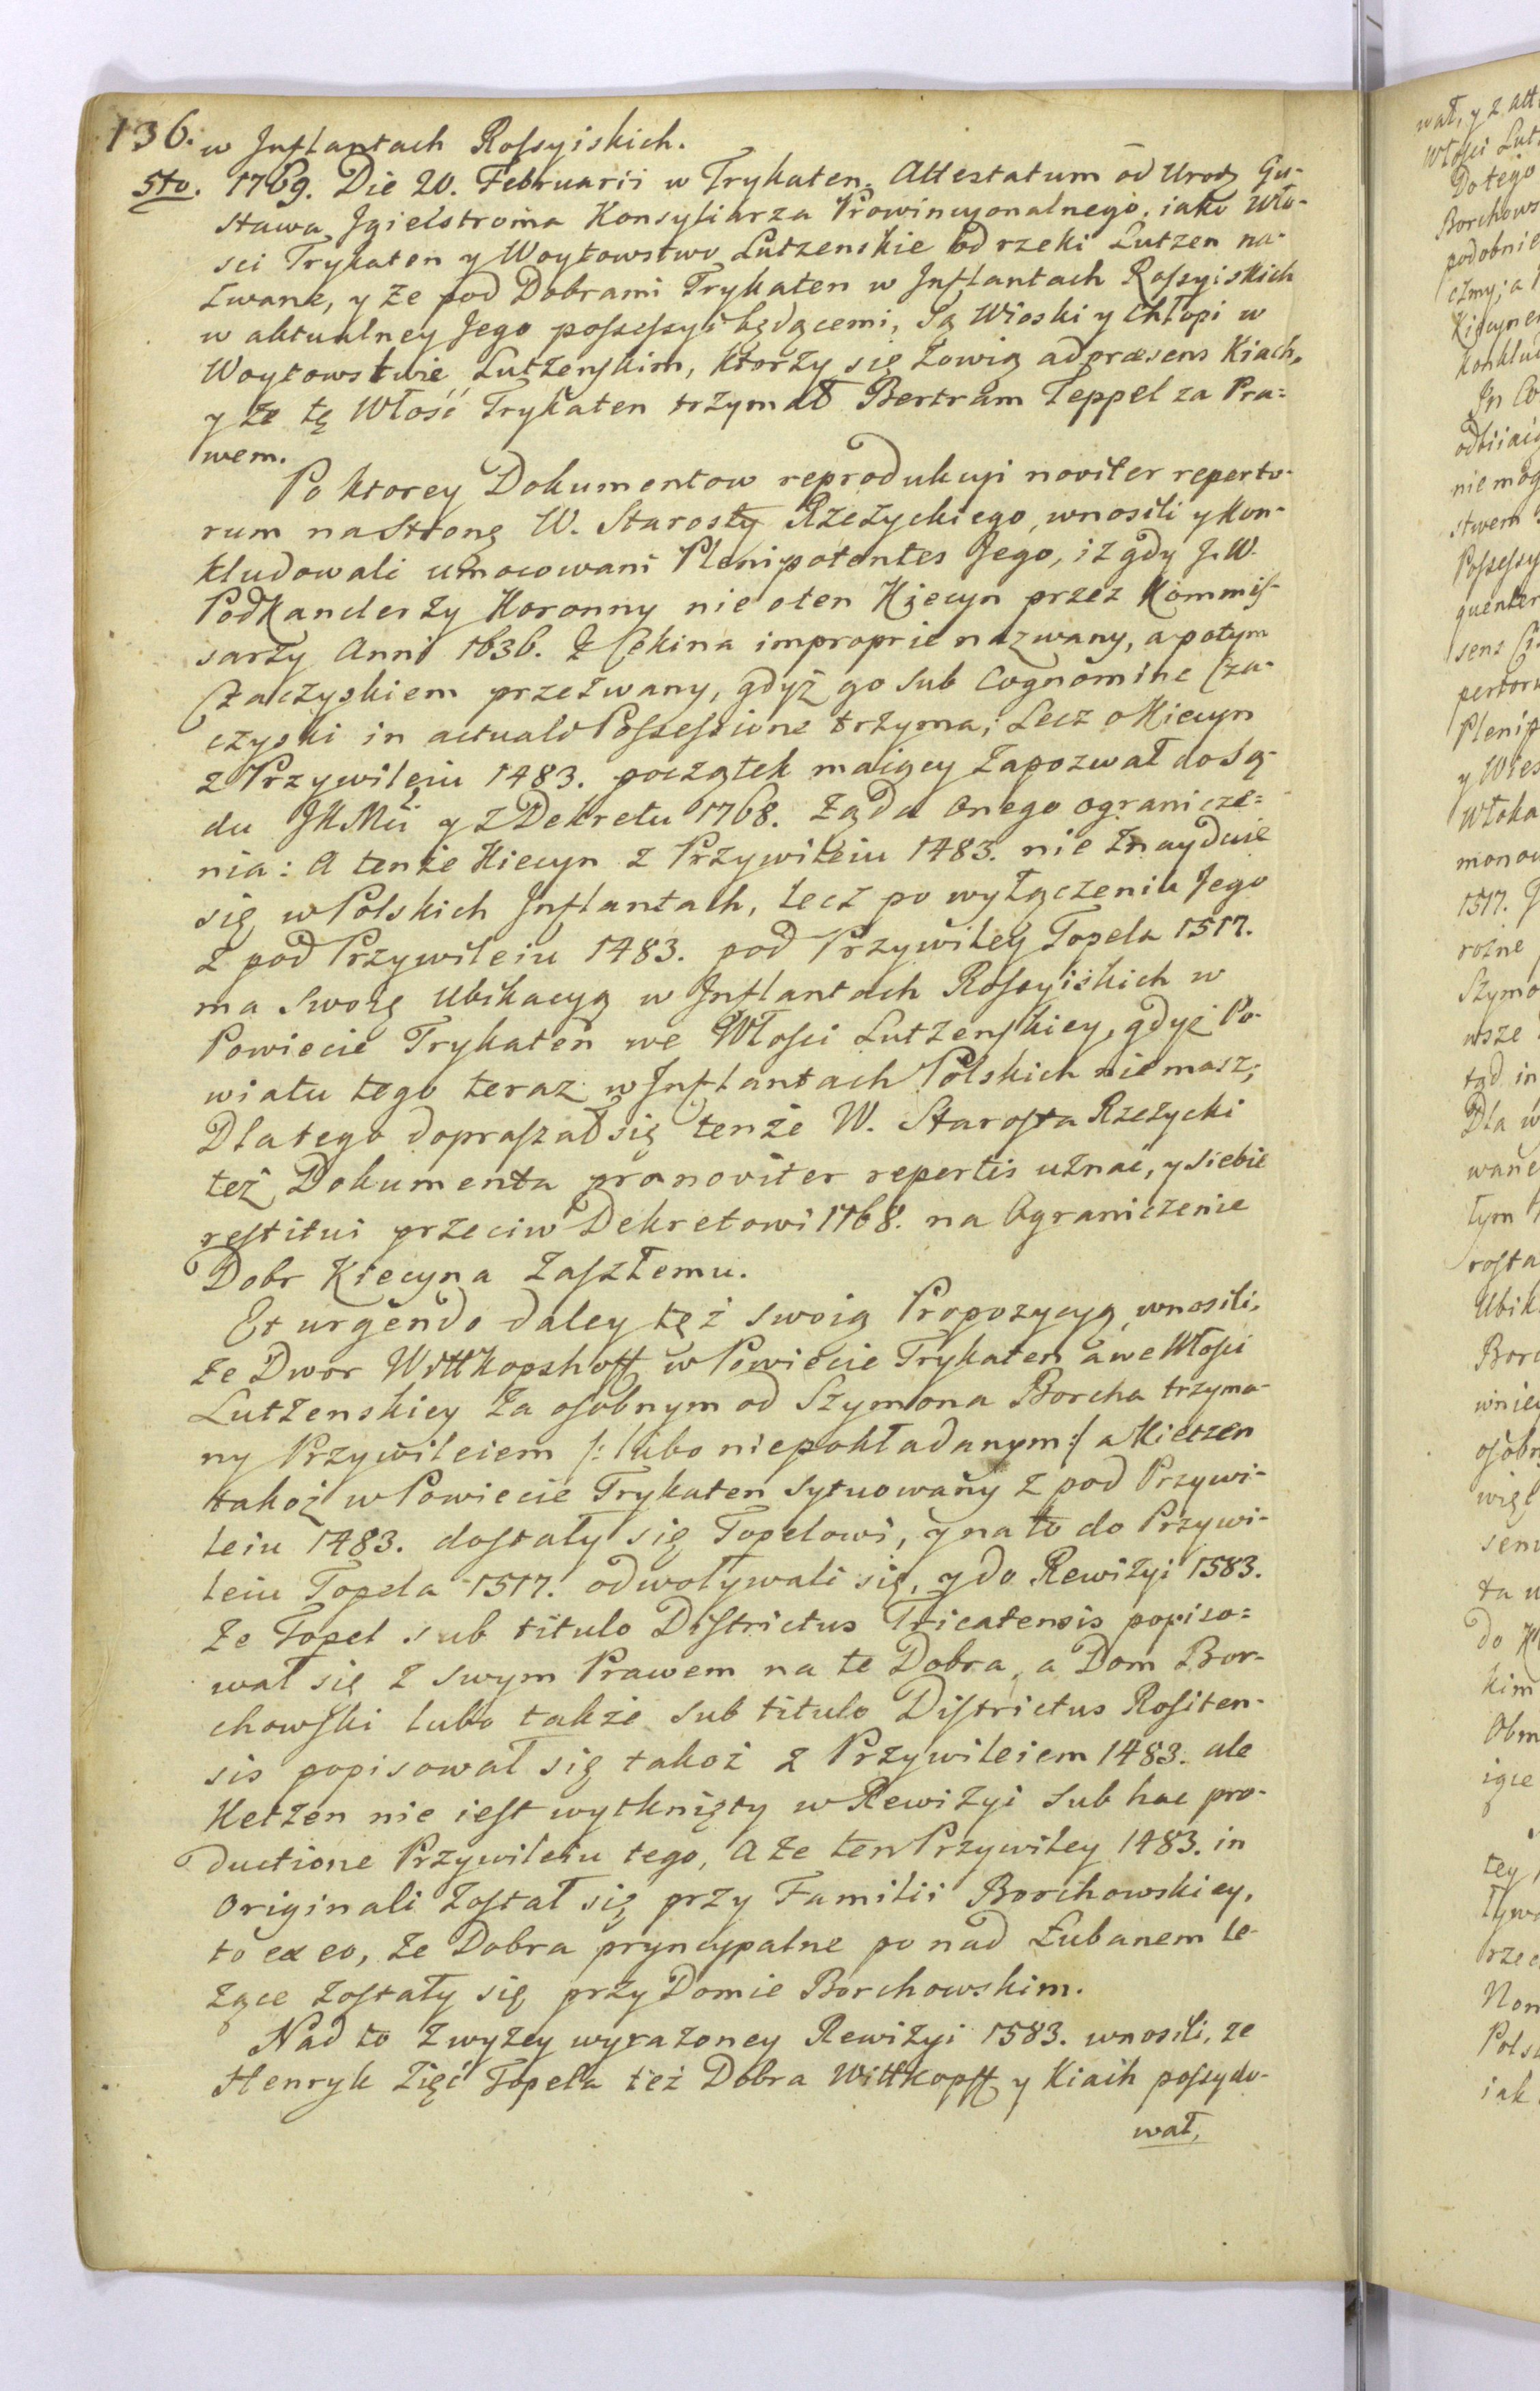 136. w Inflantach Rossyiskich.
5to. 1769. Die 20. Februarii w Trykaten. Attestatum od Urodz Gu-
stawa Igielstroma Konsyliarza Prowincyonalnego, iako Wło-
sci Trykaten y Woytowstwo Lutzenskie od rzeki Lutzen na-
zwane, y że pod Dobrami Trykaten w Inflantach Rossyiskich
w aktualney Jego possessyi będącemi, są Wioski y Chłopi w
Woytowstwie Lutzenskim, ktorzy się zowią ad præsens Kiach,
y że tę Włość Trykaten trzymał Bertram Teppel za Pra=
wem.
Po ktorey Dokumentow reprodukcyi noviter reperto-
rum na stronę W. Starosty Rzeżyckiego, wnosili y kon-
kludowali umocowani Plenipotentes Jego, iż gdy J. W.
Podkanclerzy Koronny nie o ten Kiecyn przez Kommis-
sarzy Anni 1636. z Cekina improprie nazwany, a potym
Czaczyskiem przezwany, gdyż go sub Cognomine Cza-
czyski in actuali Possessione trzyma; Lecz o Kiecyn
z Przywileiu 1483. początek maiący zapozwał do Są-
du JKMci y z Dekretu 1768. żąda onego ogranicze=
nia: A tenże Kiecyn z Przywileiu 1483. nie znayduie
się w Polskich Inflantach, lecz po wyłączeniu Jego
z pod Przywileiu 1483. pod Przywiley Topela 1517.
ma swoię Ubikacyą w Inflantach Rossyiskich w
Powiecie Trykaten we Włosci Lutzenskiey, gdyż Po-
wiatu tego teraz w Inflantach Polskich nie masz;
Dlatego dopraszał się tenże W. Starosta Rzeżycki
też Dokumenta pro noviter repertis uznać, y siebie
restitui przeciw Dekretowi 1768. na Ograniczenie
Dobr Kiecyna zaszłemu.
Et urgendo daley też swoią Propozycyą wnosili,
że Dwor Wittkopshoff w Powiecie Trykaten a we Włosci
Lutzenskiey za osobnym od Szymona Borcha trzyma-
ny Przywileiem /: lubo niepokładanym :/ a Kietzen
takoż w Powiecie Trykaten sytuowany z pod Przywi-
leiu 1483. dostały się Topelowi, y na to do Przywi-
leiu Topela 1517. odwoływali się, y do Rewizyi 1583.
że Topel sub titulo Districtus Tricatensis popiso=
wał się z swym Prawem na te Dobra, a Dom Bor-
chowski lubo także sub titulo Districtus Rositen-
sis popisował się takoż z Przywileiem 1483. ale
Ketzen nie iest wytknięty w Rewizyi sub hac pro-
ductione Przywileiu tego, A że ten Przywiley 1483. in
Originali został się przy Familii Borchowskiey,
to ex eo, że Dobra pryncypalne ponad Łubanem le-
żące zostały się przy Domie Borchowskim.
Nad to z wyżey wyrażoney Rewizyi 1583. wnosili, że
Henryk Zięć Topela też Dobra Wittkopff y Kiaih possydo-
wał,